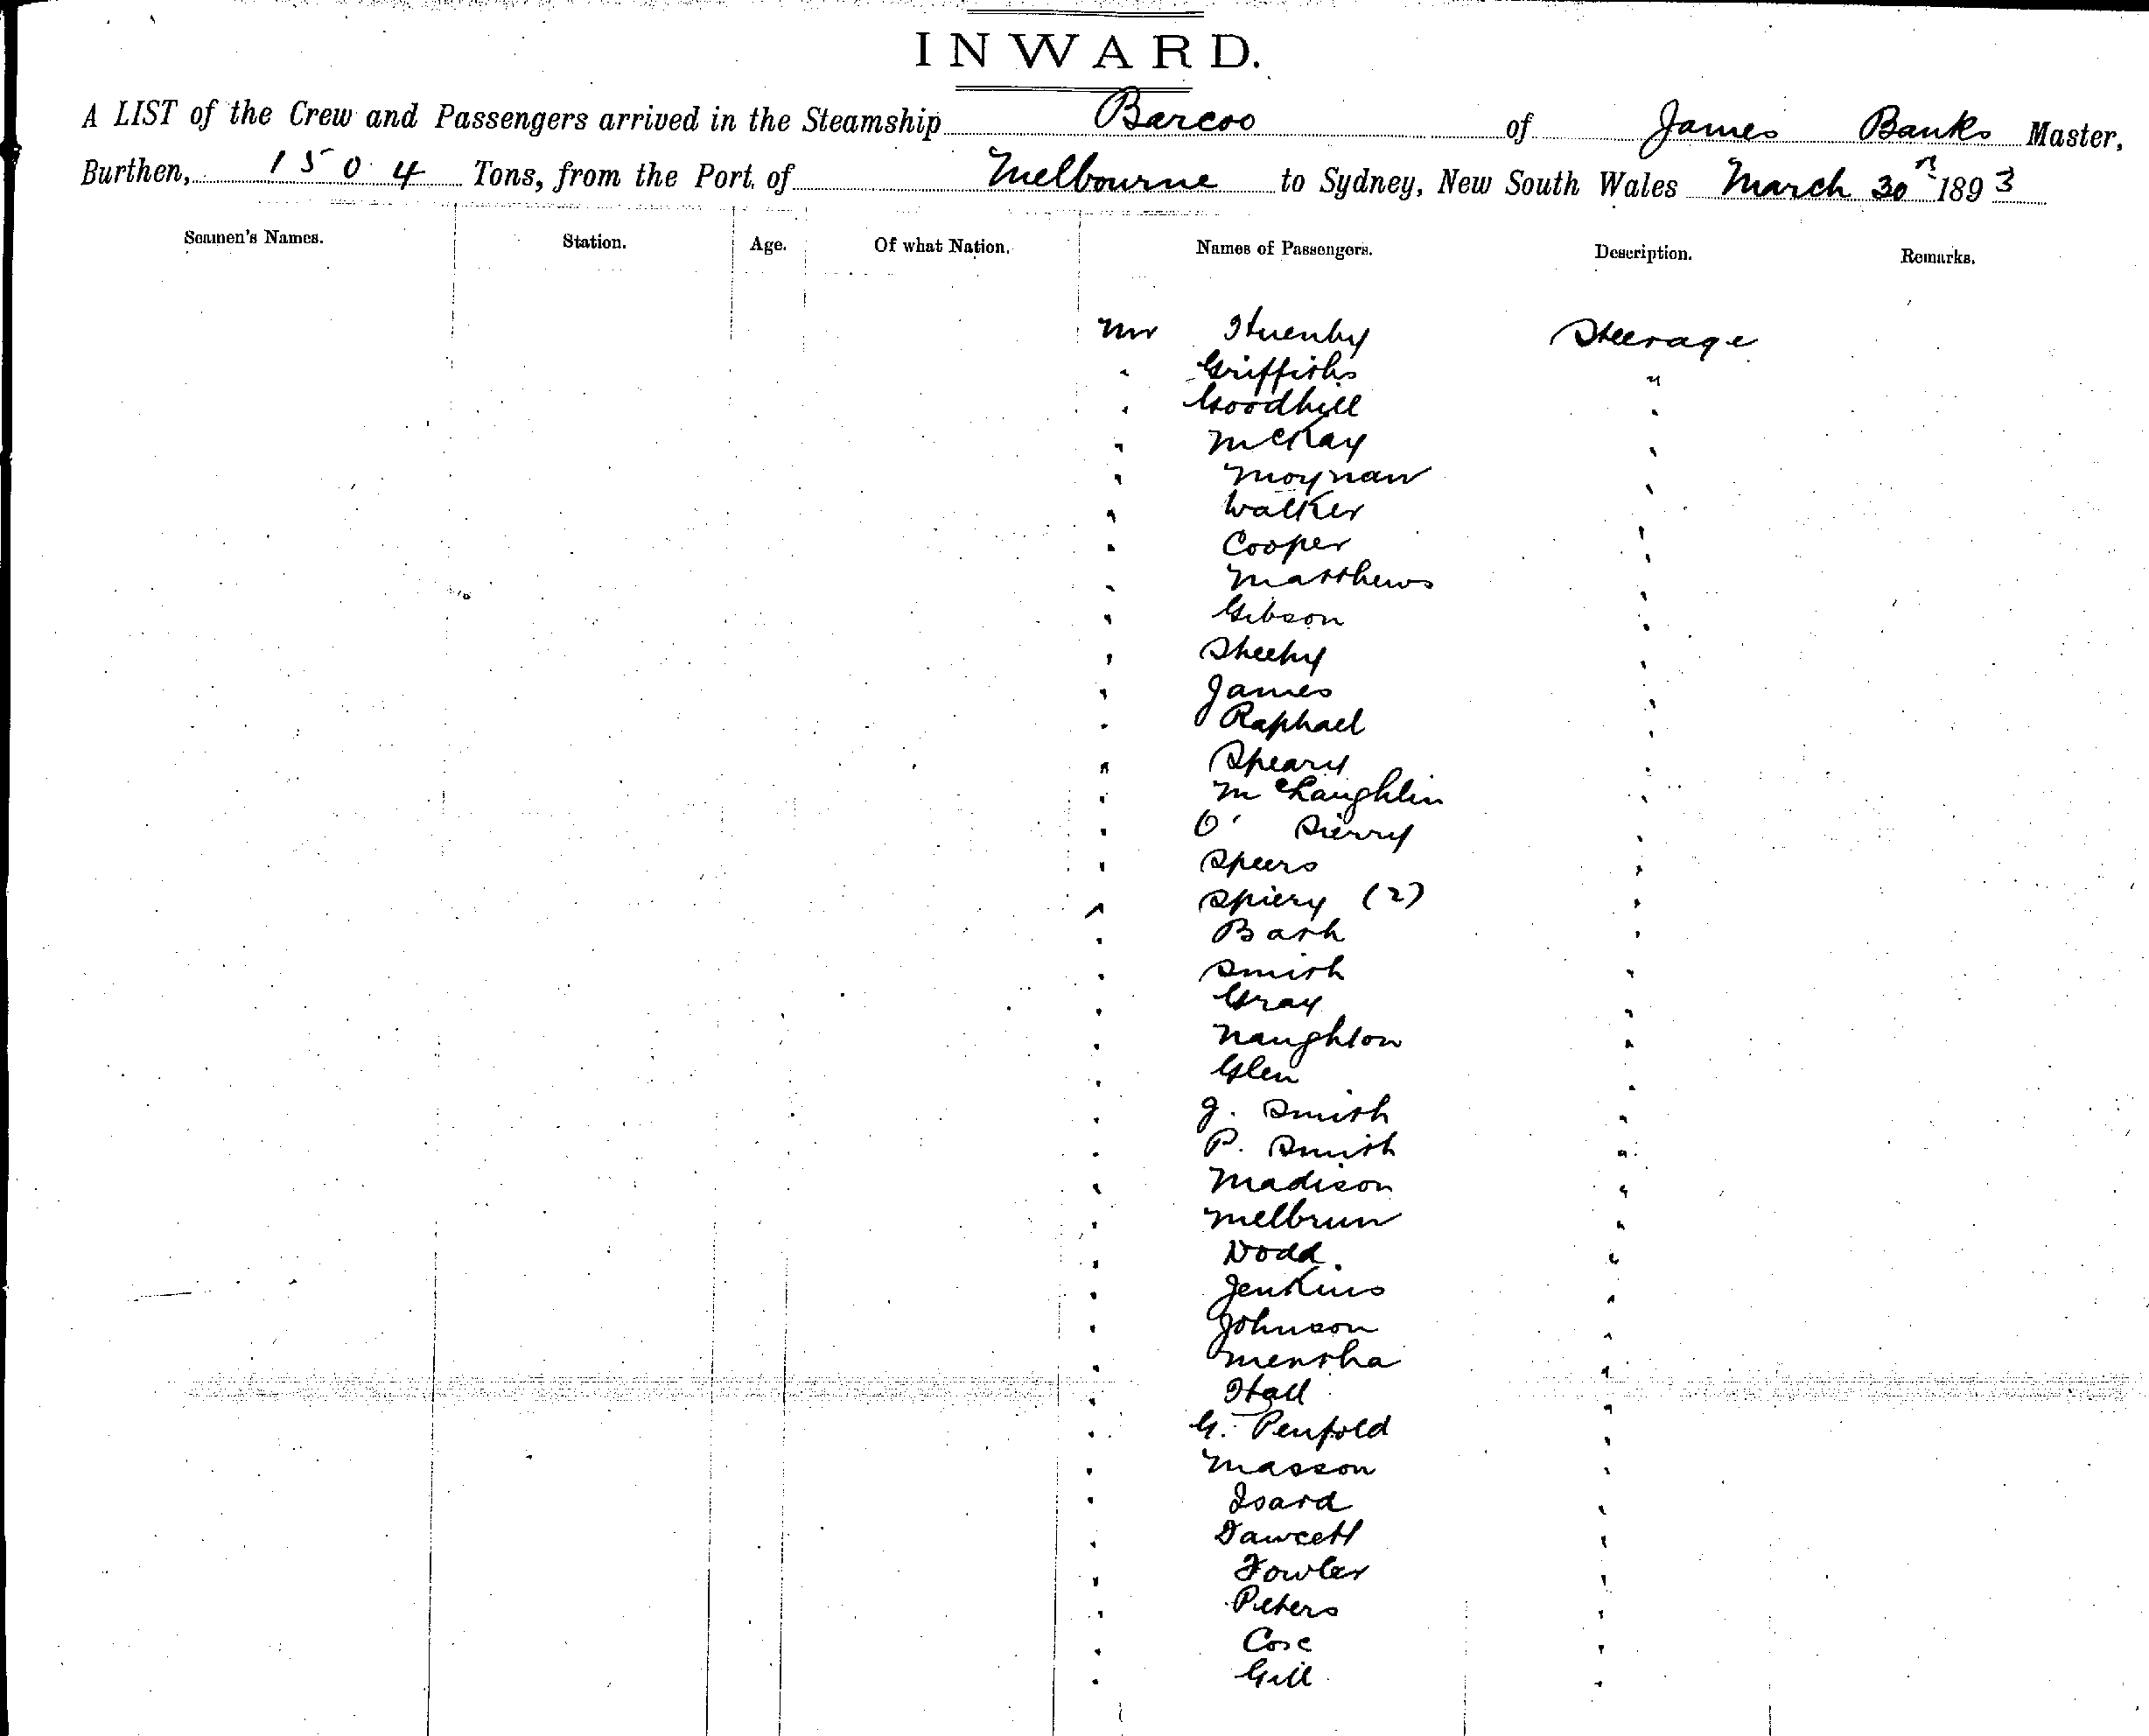 INWARD.
A LIST of the Crew and Passengers arrived in the Steamship Barcoo of James Banks Master,
Burthen, 1504 Tons, from the Port of Melbourne to Sydney, New South Wales March 30th 1893
Seamen's Names. Station. Age. Of what Nation. Names of Passengers. Description. Remarks.
Mr Steerage
" Griffiths "
" Goodhill "
" McKay "
" Moynan "
" Walker "
" Cooper "
" Matthews "
" Gibson "
" Sheehy "
" James "
" Raphael "
" Speary "
" McLaughlin "
" O' Sierry "
" Speers "
" Spiery (2) "
" Bath "
" Smith "
" Gray "
" Naughton "
" Glen "
" J. Smith "
" P. Smith "
" Madison "
" Melbrun "
" Dodd. "
" Jenkins "
" Johnson "
" Mentha "
" Hall "
" G. Penfold "
" Masson "
" Isard "
" Fawcett "
" Fowler "
" Peters "
" "
" Gill "